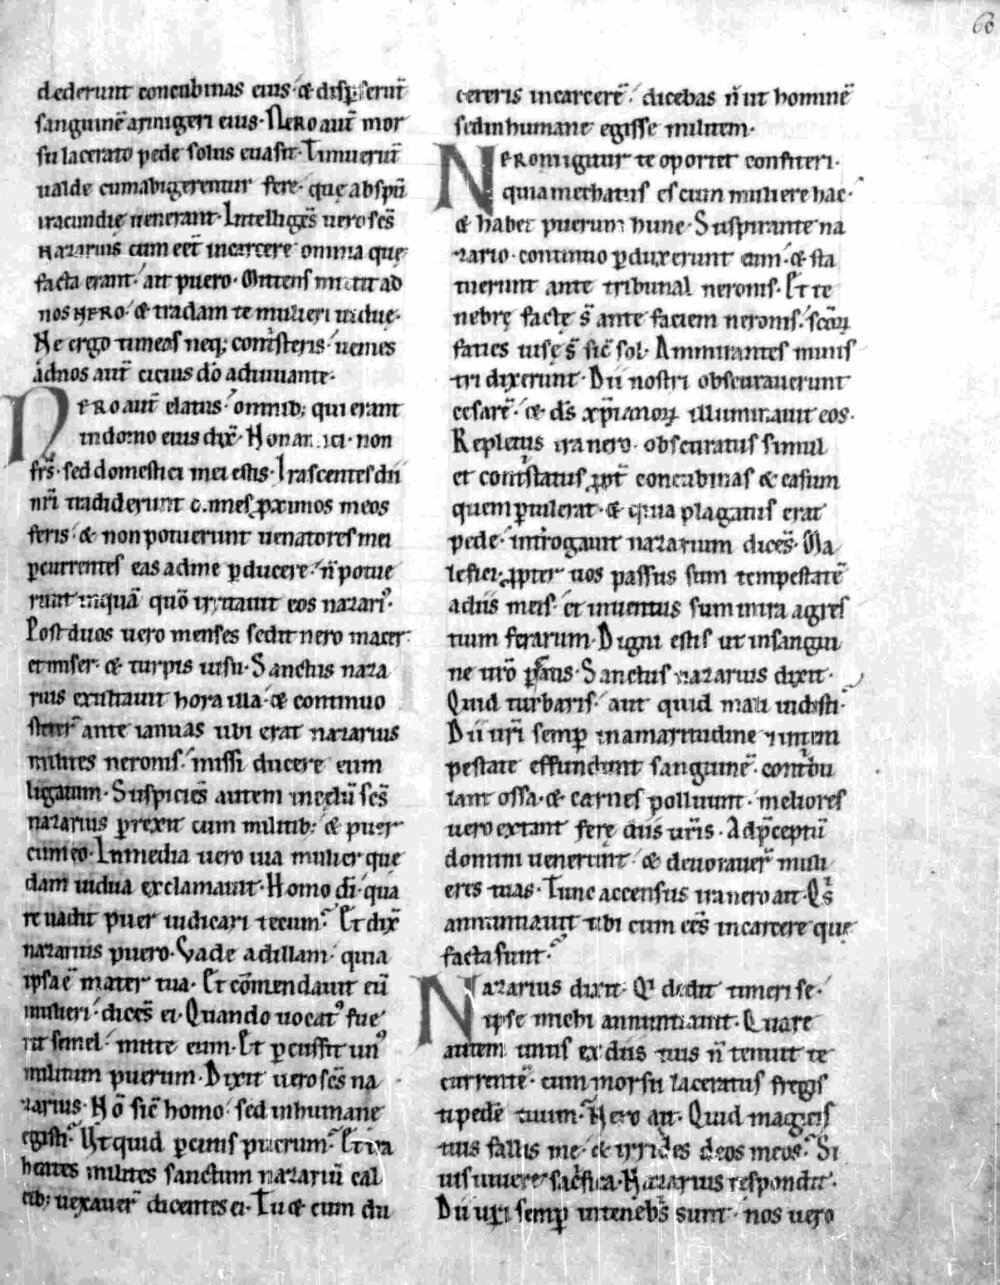 60
dederunt concubinas eius· & disp̱serunt̄
sanguinē armigeri eius· Nero aut̄ mor
su lacerato pede solus euasit· Timuerunt̄
ualde cum abigerentur fere· quę absp̄u
iracundię uenerant· Intelligēs uero sc̄s
nazarius cum eēt incarcere omnia quę
facta erant· ait puero· Mittens mittit ad
nos nero· & tradam te mulieri uiduę·
Ne ergo timeas neq; contristeris· uenies
adnos aut̄ cicius dō adiuuante·
Nero aut̄ elatus· omnib; qui erant
indomo eius dix̄· non
frs̄· sed domestici mei estis· Irascentes dii
nr̄i tradiderunt omnes ꝓximos meos
feris· & non potuerunt uenatores mei
ꝑcurrentes eas adme ꝑducere· n̄ potue
runt inquā quō irritauit eos nazariꝰ·
Post duos uero menses sedit nero macer
et miser· & turpis uisu· Sanctus naza
rius exultauit hora illa· & continuo
steterꝉ ante ianuas ubi erat nazarius
milites neronis· missi ducere eum
ligatum· Suspiciēs autem incelū sc̄s
nazarius ꝑrexit cum militib; & puer
cum eo· Inmedia uero uia mulier que
dam uidua exclamauit· Homo dī· qua
re uadit puer iudicari tecum? Et dix̄
nazarius puero· Vade adillam· quia
ipsa ē mater tua· Et cōmendauit eū
mulieri· dicēs ei· Quando uocatꝰ fue
rit semel· mitte eum· Et ꝑcussit unꝰ
militum puerum· Dixit uero sc̄s na
zarius· Nō sic̄ homo· sed inhumane
egisti· Ut quid ꝑcutis puerum? Et ira
hentes milites sanctum nazariū cal
cib; uexauer̄ dicentes ei· Tu & cum du
ceteris incarcerē· dicebas n̄ ut hominē
sed inhumane egisse militem·
Neroni igitur te oportet confiteri·
quia mechatus es cum muliere hac·
& habet puerum hunc· Suspirante na
zario· continuo ꝑduxerunt eum· & sta
tuerunt ante tribunal neronis· Et te
nebrę factę s̄ ante faciem neronis· sc̄oꝝ
facies uisę s̄ sic̄ sol· Ammirantes minis
tri dixerunt· Dii nostri obscurauerunt
cesarē· & ds̄ xp̄ianoꝝ illuminauit eos·
Repletus ira nero· obscuratus simul
et contristatus ꝓpt̄ concubinas & casum
quem ꝑtulerat· & quia plagatus erat
pede· intrͦgauit nazarium dicēs· Ma
lefici· ꝓpter uos passus sum tempestatē
adiis meis· et inuentus sum intra agres
tium ferarum· Digni estis ut insangui
ne ur̄o Sanctus nazarius dixit·
Quid turbaris· aut quid mali uidisti·
Dii ur̄i semꝑ inamaritudine & intem
pestate effundunt sanguinē· contribu
lant ossa· & carnes polluunt· meliores
uero extant ferę diis ur̄is· Ad p̄ceptū
domini uenerunt· & deuorauer̄ muli
eres tuas· Tunc accensus ira nero ait· Qͥs
annuntiauit tibi cum eēs incarcere quę
facta sunt?
Nazarius dixit· Qͥ dedit timeri se·
ipse michi annuntiauit· Quare
autem unus ex diis tuis n̄ tenuit te
currentē· cum morsu laceratus fregis
ti pedē tuum? Nero ait· Quid magicis
tuis fallis me· & irrides deos meos? Si
uis uiuere sac̄fica· Nazarius respondit·
Dii ur̄i semꝑ intenebris sunt· nos uero